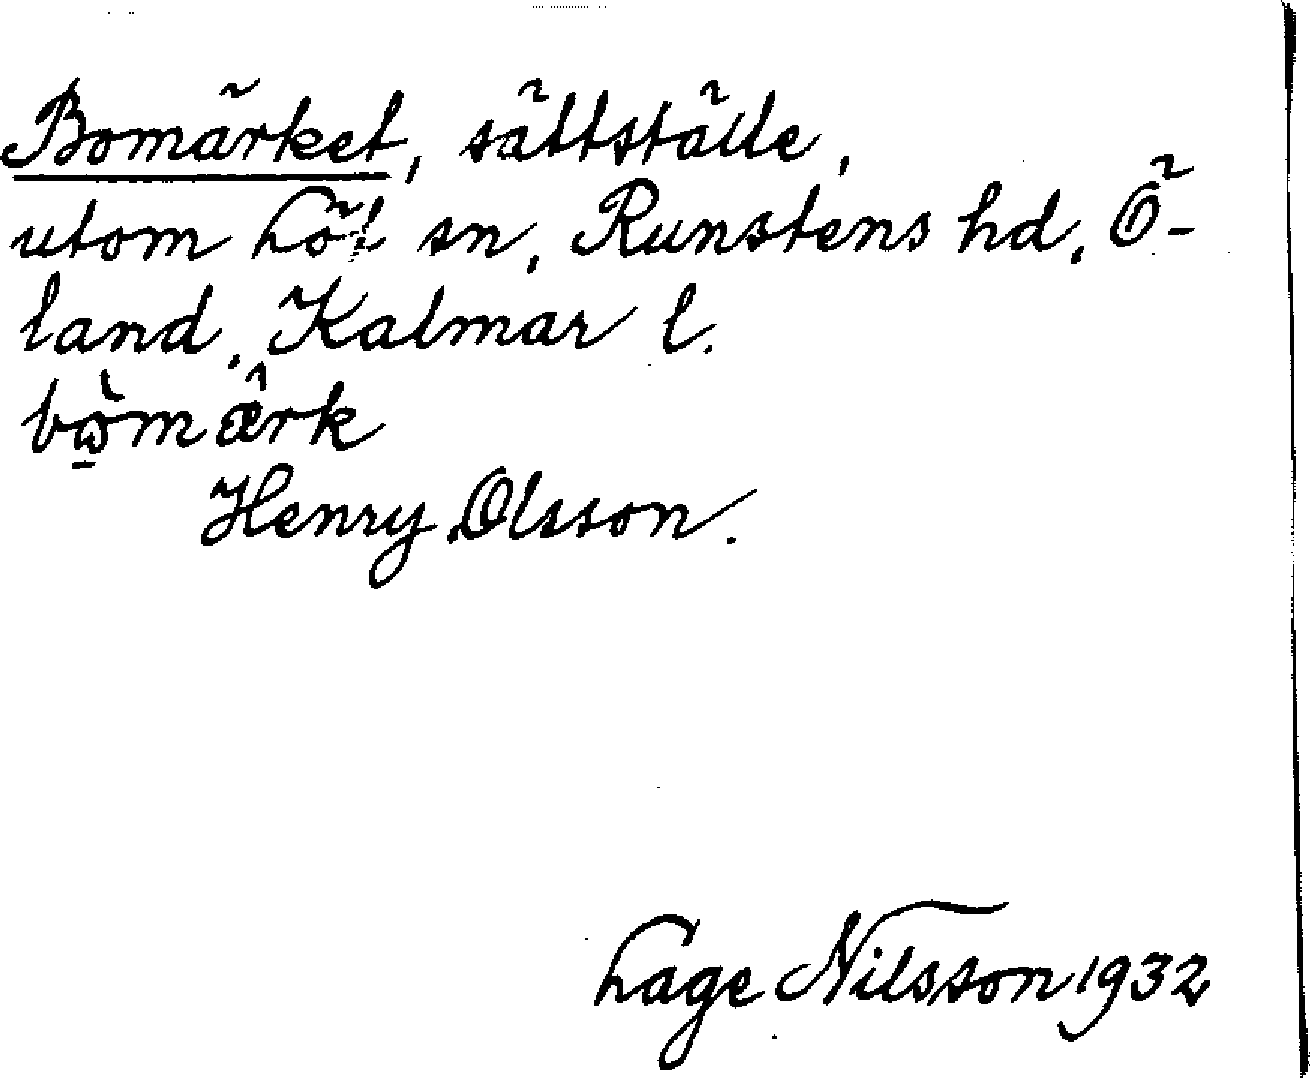 Bomärket, sättställe,
utom Löt sn, Runstens hd, Ö-
land, Kalmar l.
bὼ̱mæ̂rk
Henry Olsson.
Lage Nilsson 1932